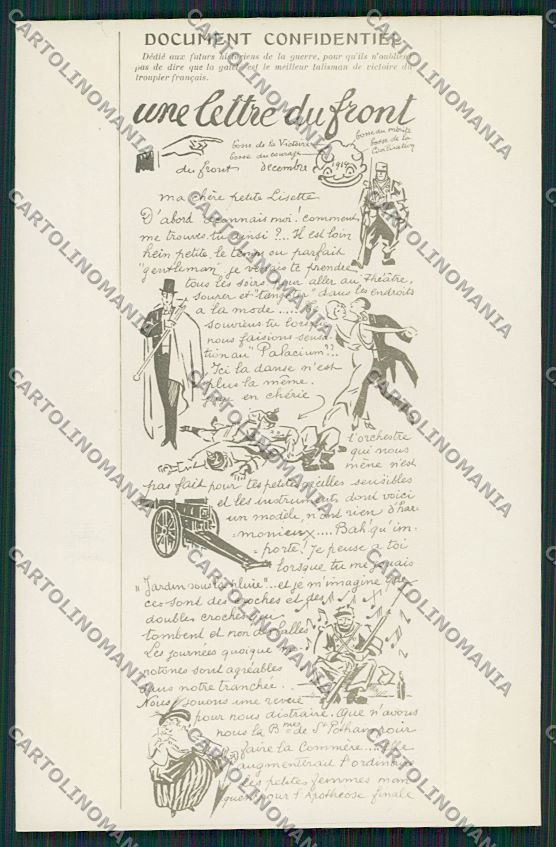 DOCUMENT CONFIDENTIEL
Dédié aux futurs historiens de la guerre, pour qu'ils n'oublient
pas de dire que la gaieté est le meilleur talisman de victoire du
troupier français.
une lettre du front
bosse de la Victoire
bosse du courage
bosse du mérite
bosse de la Civilisation
1914
du front décembre
ma chère petite Lisette
D'abord reconnais moi! comment
me trouves-tu ainsi?... Il est loin
hein petite le temps ou parfait
"gentleman" je venais te prendre
tous les soirs pour aller au théâtre,
souper et "tangoter" dans les endroits
a la mode.....
souviens tu lorsque
nous faisions sensa-
tion au "Palacium"??
Ici la danse n'est
plus la même.
en chérie
l'orchestre
qui nous
mène n'est
pas fait pour tes petites oreilles sensibles
et les instruments, dont voici
un modèle, n'ont rien d'har-
monieux.... Bah! qu'im-
porte! Je pense a toi
lorsque tu me jouais
"Jardin sous la pluie"... et je m'imagine que
ces sont des croches et des
doubles croches qui
tombent et non des balles
Les journées quoique mo-
notones sont agréables
dans notre tranchée..
Nous jouons une revue
pour nous distraire. Que n'avons
nous la Bnne de St Pothain pour
faire la Commère... Elle
augmenterait l'ordinaire
les petites femmes man-
quent pour l'Apothéose finale
CARTOLINOMANIA